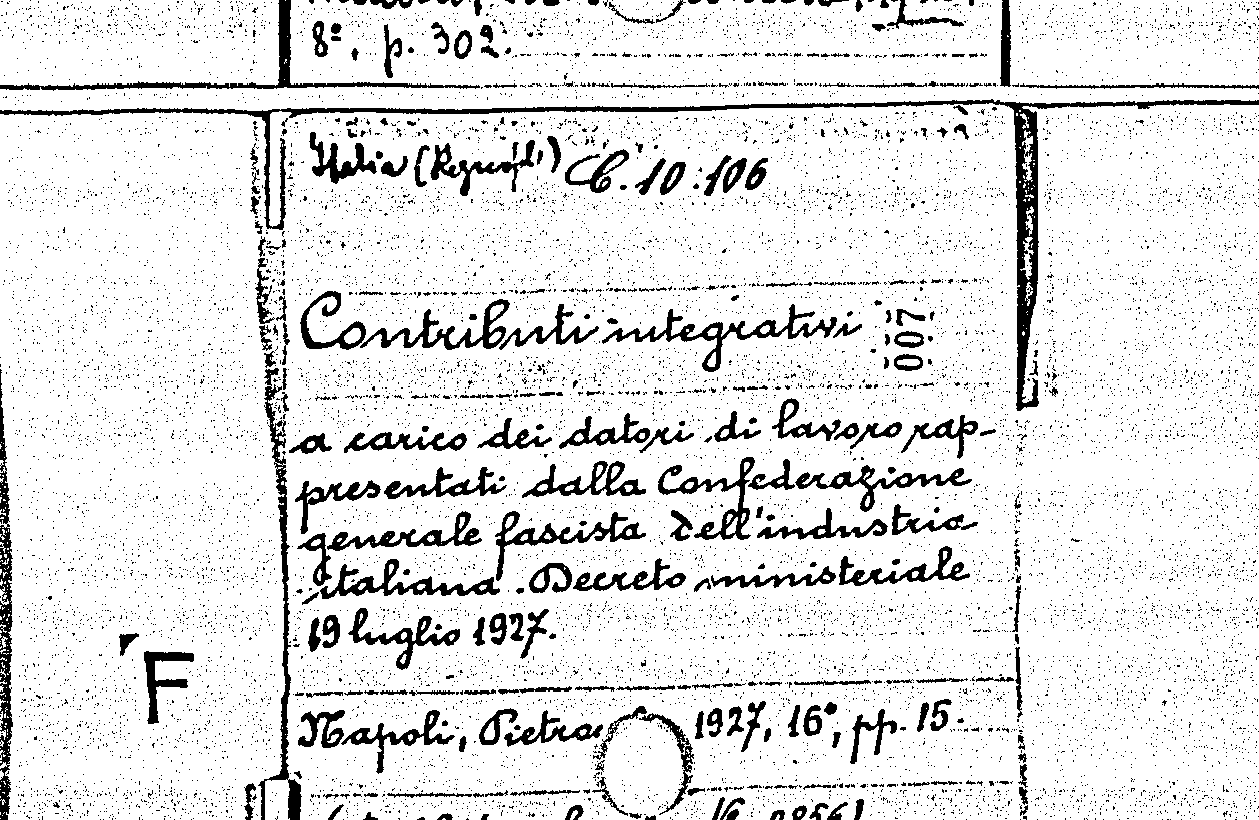 8º, p. 302.
Italia (Regno di) C. 10.106
Contributi integrativi
007
a carico dei datori di lavoro rap-
presentati dalla Confederazione
generale fascista dell'industria
italiana. Decreto ministeriale
19 luglio 1927.
F
Napoli, 1927, 16º, pp. 15.